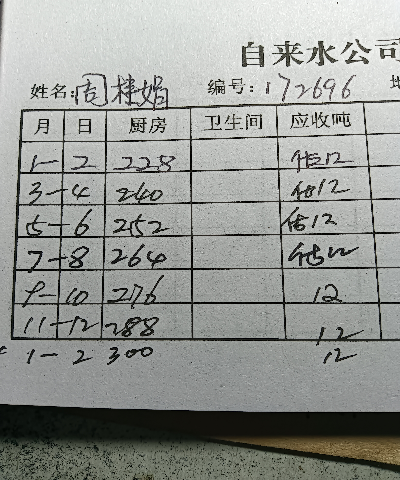 自来水公司
姓名:周桂娟 编号:172696
月 日 厨房 卫生间 应收吨
1-2 228 估12
3-4 240 估12
5-6 252 估12
7-8 264 估12
9-10 276 12
11-12 288 12
1-2 300 12